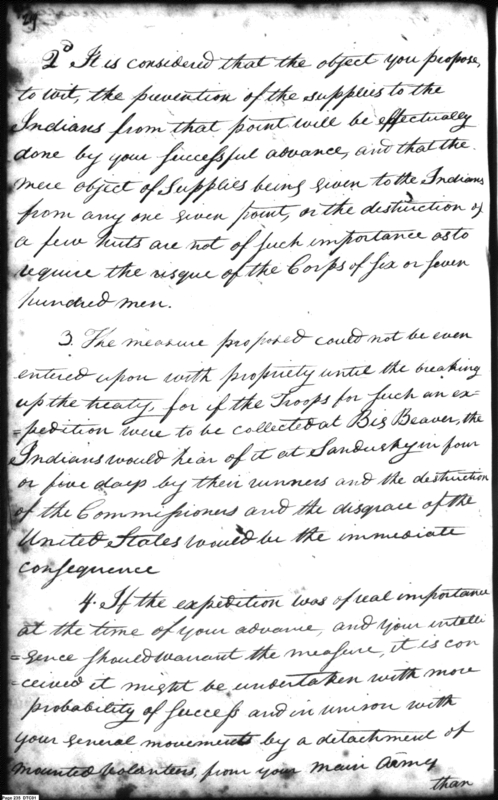 29
2d It is considered that the object you propose,
to wit, the prevention of the supplies to the
Indians from that point will be effectually
done by your successful advance, and that the
mere object of Supplies being given to the Indians
from any one given point, or the distruction of
a few huts are not of such importance as to
require the risque of the Corps of six or seven
hundred men.
3. The measure proposed could not be even
entered upon with propriety until the breaking
up the treaty, for if the Troops for such an ex=
=pedition were to be collected at Big Beaver, the
Indians would hear of it at Sandusky in four
or five days by their runners and the destruction
of the Commissioners and the disgrace of the
United States would be the immediate
consequence
4. If the expedition was of real importance
at the time of your advance, and your intelli
=gence should warrant the measure, it is con
=ceived it might be undertaken with more
probability of success and in unison with
your general movements by a detachment of
mounted Volunteers, from your main Army
than
Page 235 DTC01